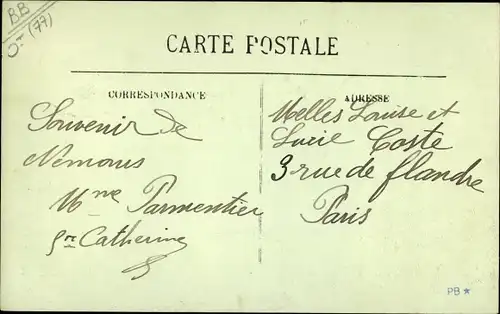 BB
(77)
CARTE POSTALE
CORRESPONDANCE
Souvenir de
Nemours
Mme Parmentier
Catherine
ADRESSE
Melles Louise et
Lucie Coste
3 rue de flandre
Paris
PB *